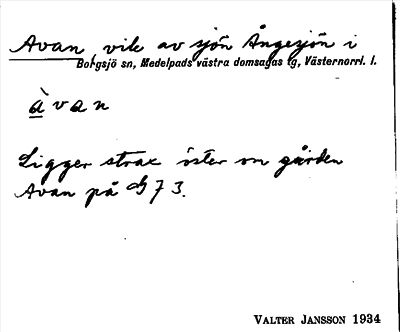 Avan, vik av sjön Ångesjön i
Borgsjö sn, Medelpads västra domsagas tg, Västernorrl. l.
àvan
Ligger strax öster om gården
Avan på G 7 3.
VALTER JANSSON 1934